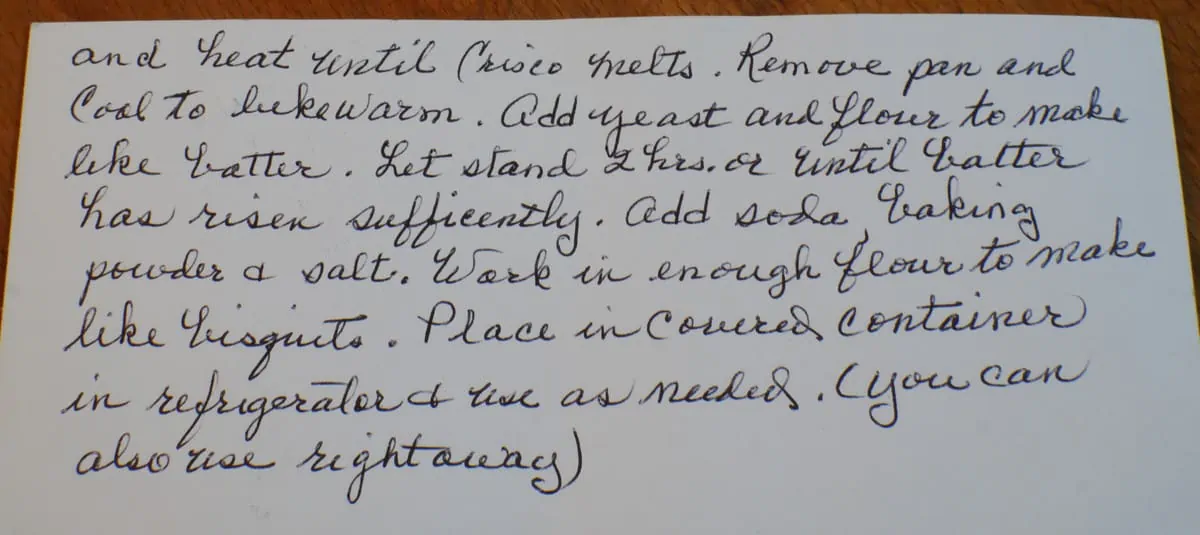 and heat until Crisco melts. Remove pan and
Cool to lukewarm. Add yeast and flour to make
like batter. Let stand 2 hrs. or until batter
has risen sufficently. Add soda, baking
powder & salt. Work in enough flour to make
like bisquits. Place in Covered Container
in refrigerator & use as needed. (you can
also use right away)